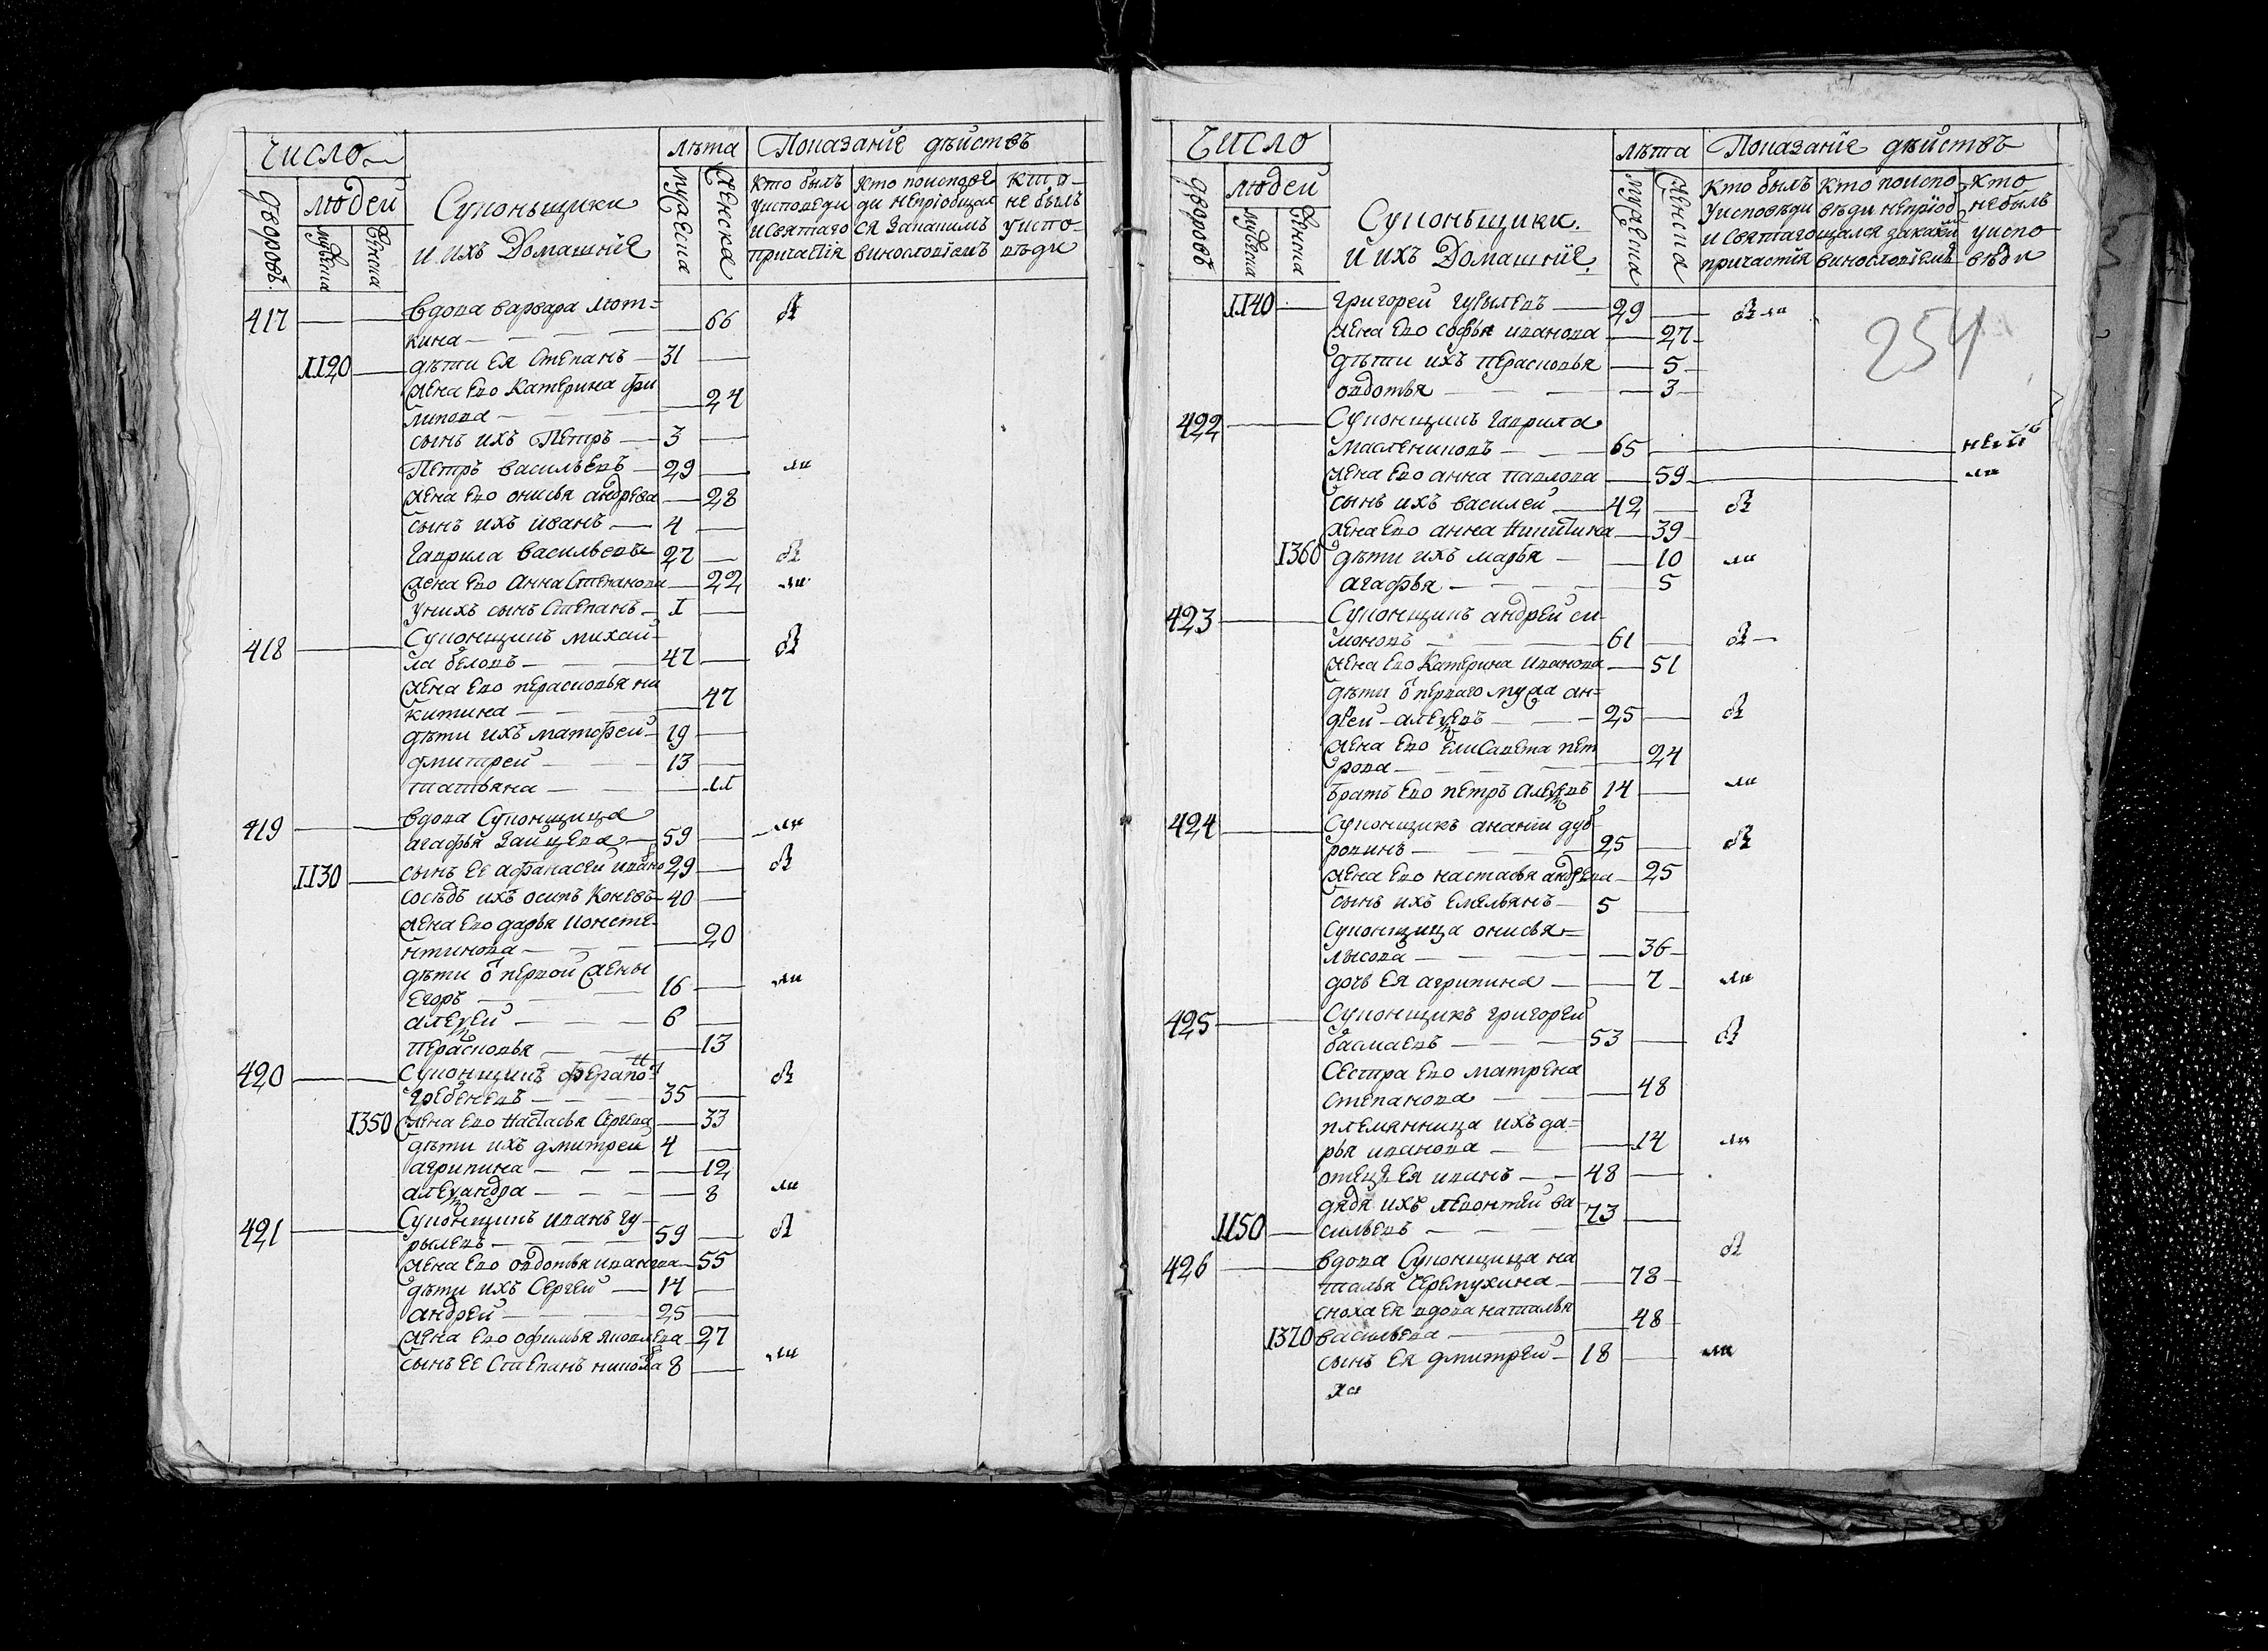 Число
Лѣта Показание дѣйствъ
дворовъ
людей
мужеска
женска
Суконьщики
и ихъ Домашние
мужеска
женска
кто былъ
у исповеди
и святаго
причастія
кто поисповѣ
ди непріобщал
ся закакимъ
винословіемъ
кто
не былъ
у испо
вѣди
417 вдова варвара Мот=
кина 66 был
1120 дѣти ея Степанъ 31
жена ево Катерина фи
липова 24
сынъ ихъ Петръ 3
Петръ васильевъ 29 ли
жена ево онисья андреева 28
сынъ ихъ иванъ 4
Гаврила васильевъ 27 был
жена ево Анна Степанова 22 ли
у нихъ сынъ Степанъ 1
418 Суконщикъ михаи
ла беловъ 47 был
жена ево перасковья ни
китина 47
дѣти ихъ матфей 19
дмитрей 13
татьяна 11
419 вдова Суконщица
агафья Зайцева 59 ли
1130 сынъ ее афанасей ивано 29 был
сосѣдъ ихъ осипъ Коневъ 40
жена ево дарья Конста
нтинова 20
дѣти о первой жены
Егоръ 16 ли
алеѯей 6
Перасковья 13
420 Суконщикъ ферапо
Гребеневъ 35 был
1350 жена ево настасья Сергева 33
дѣти ихъ дмитрей 4
агрипина 12
алеѯандра 8 ли
421 Суконщикъ иванъ гу
рылевъ 59 был
жена ево овдотья иванова 55
дѣти ихъ Сергей 14
андрей 25
жена ево офимья яковлева 27
сынъ ее Степанъ никола 8 ли
Число
Лѣта Показание дѣйствъ
дворовъ
людей
мужеска
женска
Суконьщики.
и ихъ Домашние.
мужеска
женска
кто былъ
у исповѣди
и святаго
причастія
кто поиспо
вѣди непріоб
щался закаки
винословіемъ
кто
небылъ
у испо
вѣди
254
1140 григорей гурылевъ 29 был
жена ево софья иванова 27
дѣти ихъ перасковья 5
овдотья 3
422 Суконщикъ гаврила
маслениковъ 65
жена ево анна павлова 59 ли
сынъ ихъ василей 42 был
жена ево анна никитина 39
1360 дѣти ихъ марья 10 ли
агафья 5
423 Суконщикъ андрей си
моновъ 61 был
жена ево Катерина иванова 51
дѣти о перваго мужа ан=
дрей алеѯевъ 25 был
жена ево елисавета пет
рова 24
братъ ево петръ алеѯевъ 14 ли
424 Суконщикъ ананiи дуб
ровинъ 25 был
жена ево настасья андрева 25
сынъ ихъ емельянъ 5
суконщица онисья=
лысова 36
дочь ея агрипина 7 ли
425 Суконщикъ григорей
басмаевъ 53 был
сестра ево матрена
степанова 48
племянница ихъ да=
рья иванова 14 ли
отецъ ея иванъ 48
дядя ихъ левонтей ва
1150 сильевъ 73
426 вдова Суконщица на
талья Серепухина 78 был
сноха ея вдова наталья
1370 васильева 48
сынъ ея дмитрей 18 ли